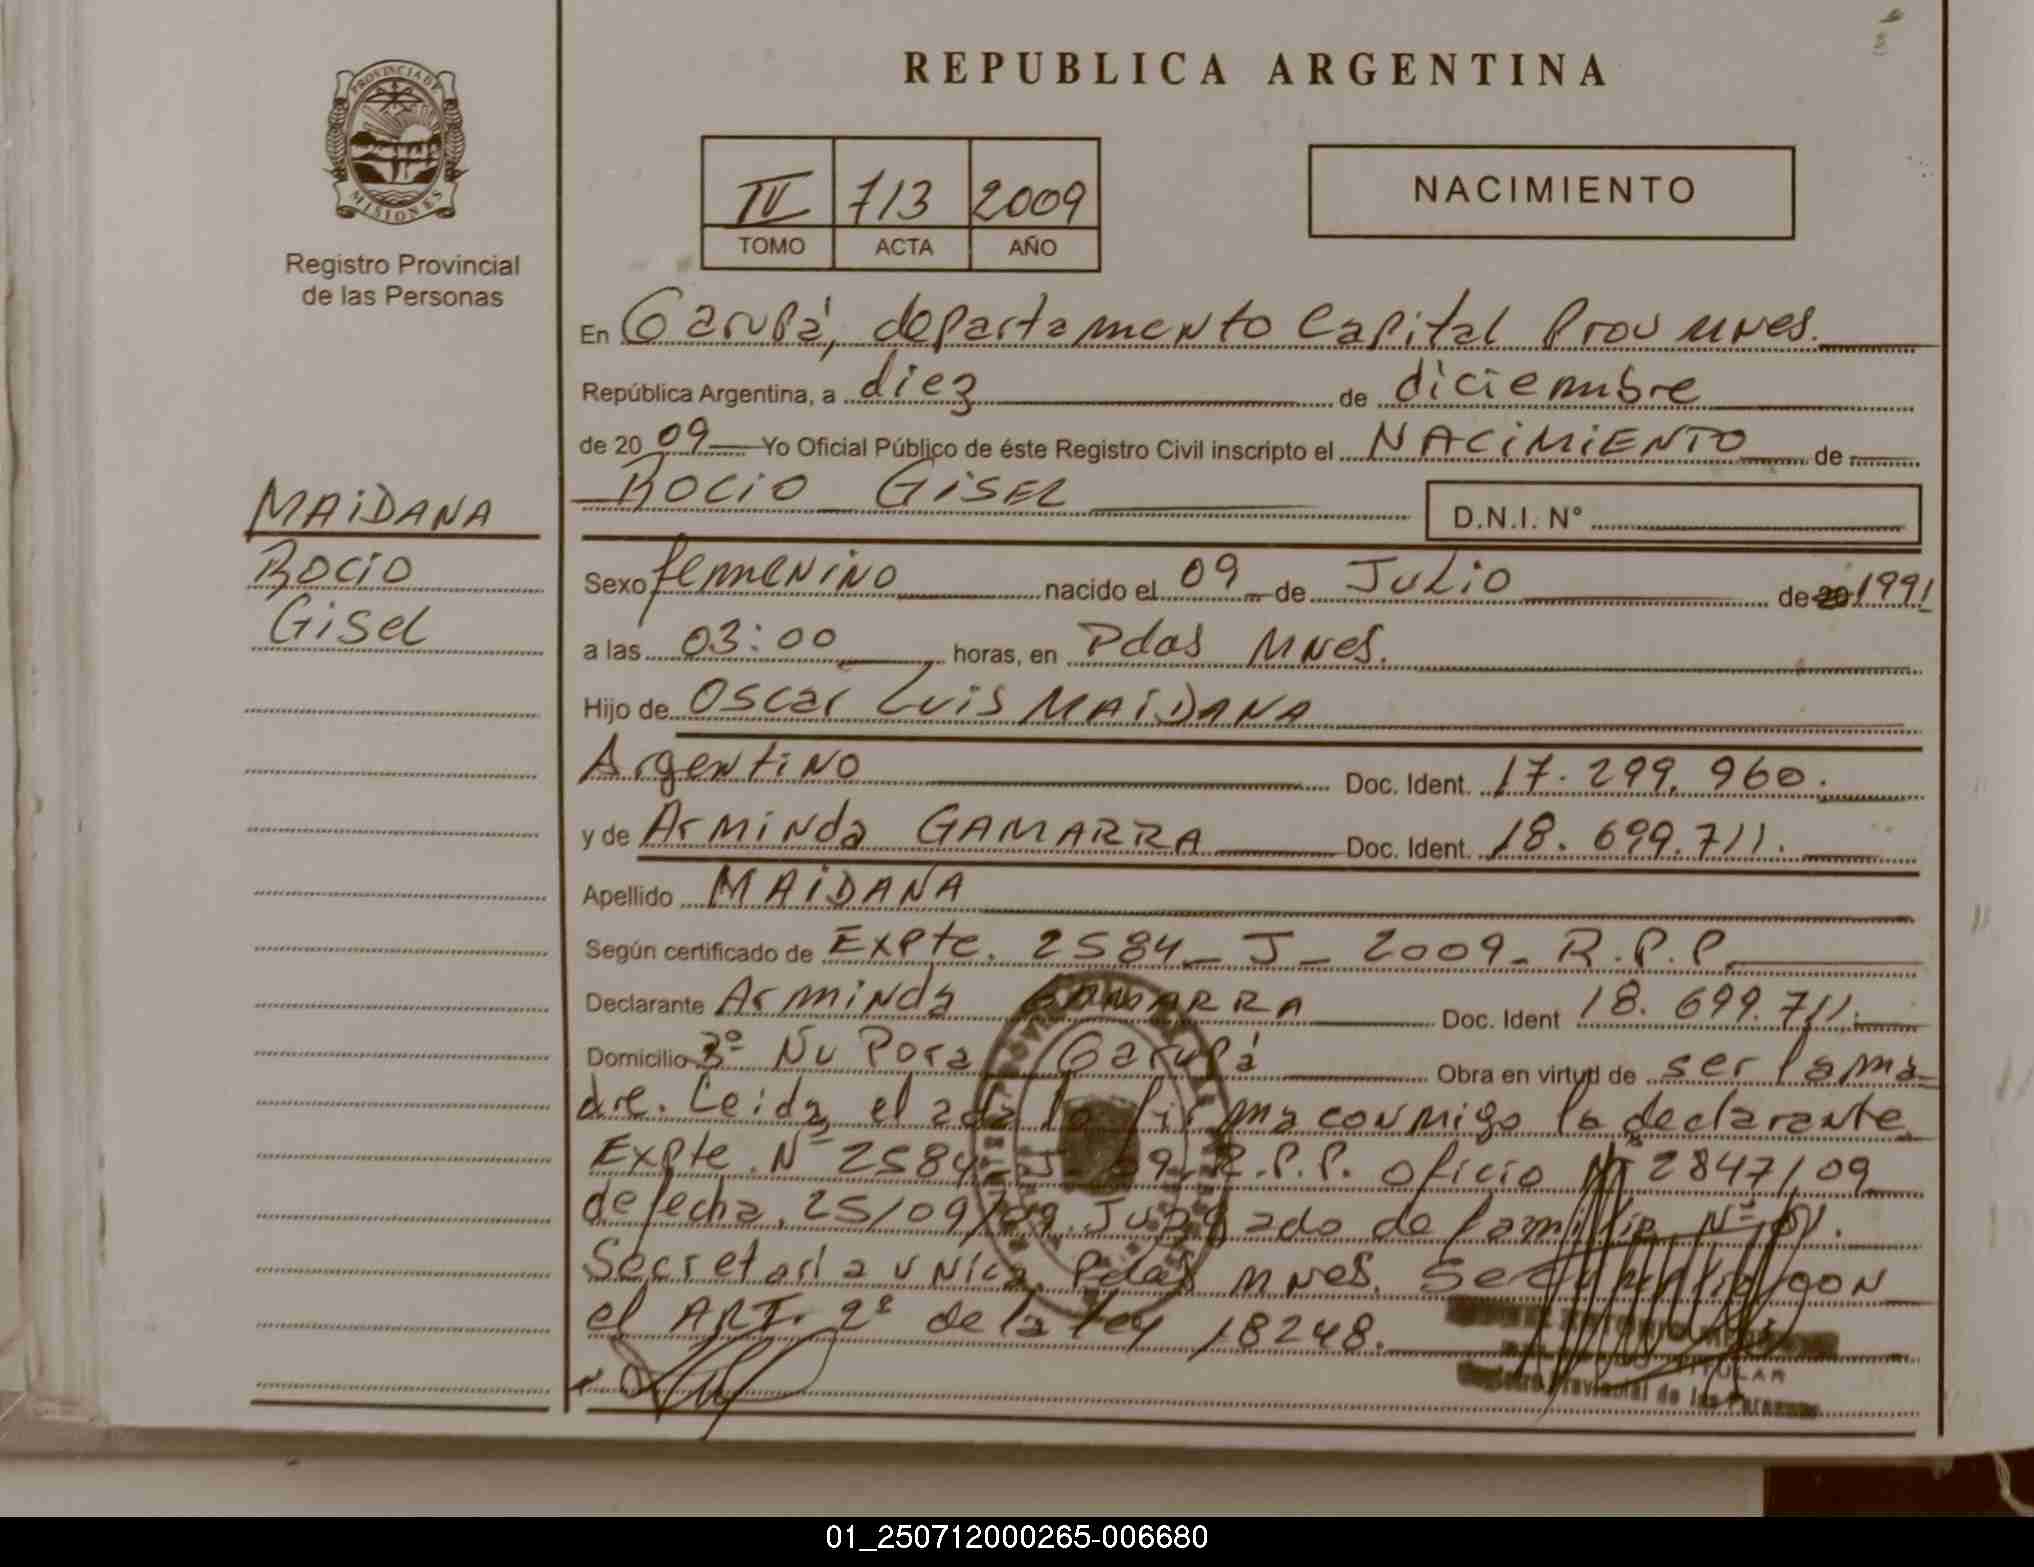 REPUBLICA ARGENTINA
PROVINCIA DE
MISIONES
Registro Provincial
de las Personas
IV 713 2009
TOMO ACTA AÑO
NACIMIENTO
En Garupá, departamento Capital Prov Mnes.
República Argentina, a diez de diciembre
de 20 09 Yo Oficial Público de éste Registro Civil inscripto el NACIMIENTO de
ROCIO GISEL
D.N.I. N°
MAIDANA
ROCIO
GISEL
Sexo femenino nacido el 09 de Julio de 20 1991
a las 03:00 horas, en Pdas Mnes.
Hijo de Oscar Luis MAIDANA
Argentino Doc. Ident. 17.299.960.
y de Arminda GAMARRA Doc. Ident. 18.699.711.
Apellido MAIDANA
Según certificado de Expte. 2584_J_2009_R.P.P.
Declarante Arminda GAMARRA Doc. Ident 18.699.711.
Domicilio Bº Ñu Pora Garupá Obra en virtud de ser la ma
dre. Leida el acta la firma conmigo la declarante
Expte. Nº 2584 J 09 R.P.P. Oficio Nº 2847/09
de fecha 25/09/09. Juzgado de familia Nº 01.
Secretaria Unica Pdas Mnes. Se cumplio con
el ART. 2º de la ley 18248.
TITULAR
Registro Provincial de las Personas
01_250712000265-006680